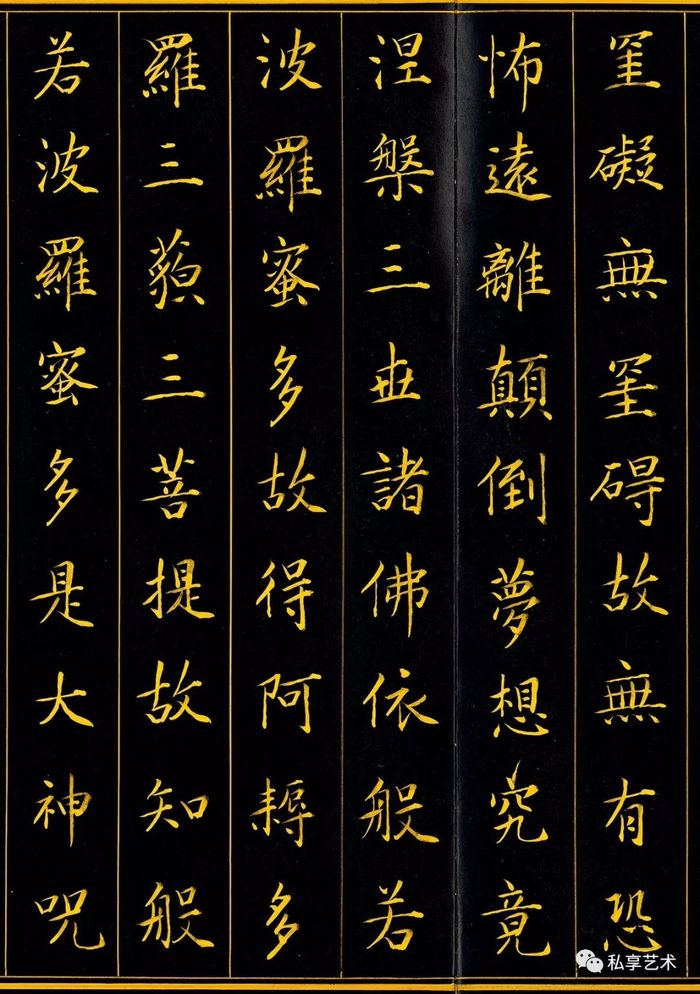 罣礙無罣碍故無有恐
怖遠離顛倒夢想究竟
涅槃三世諸佛依般若
波羅蜜多故得阿耨多
羅三藐三菩提故知般
若波羅蜜多是大神咒
私享艺术